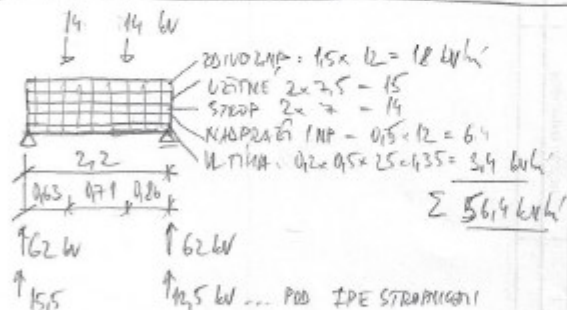 14 14 kN
ZDIVO 2.NP: 1,5 x 12 = 18 kN/m'
UŽITNÉ 2 x 7,5 = 15
STROP 2 x 7 = 14
NADPRAŽÍ 1NP = 0,5 x 12 = 6
VL. TÍHA: 0,2 x 0,5 x 25 x 1,35 = 3,4 kN/m'
Σ 56,4 kN/m'
2,2
0,63 0,71 0,86
62 kN 62 kN
15,5 12,5 kN ... POD IPE STROPNICEMI